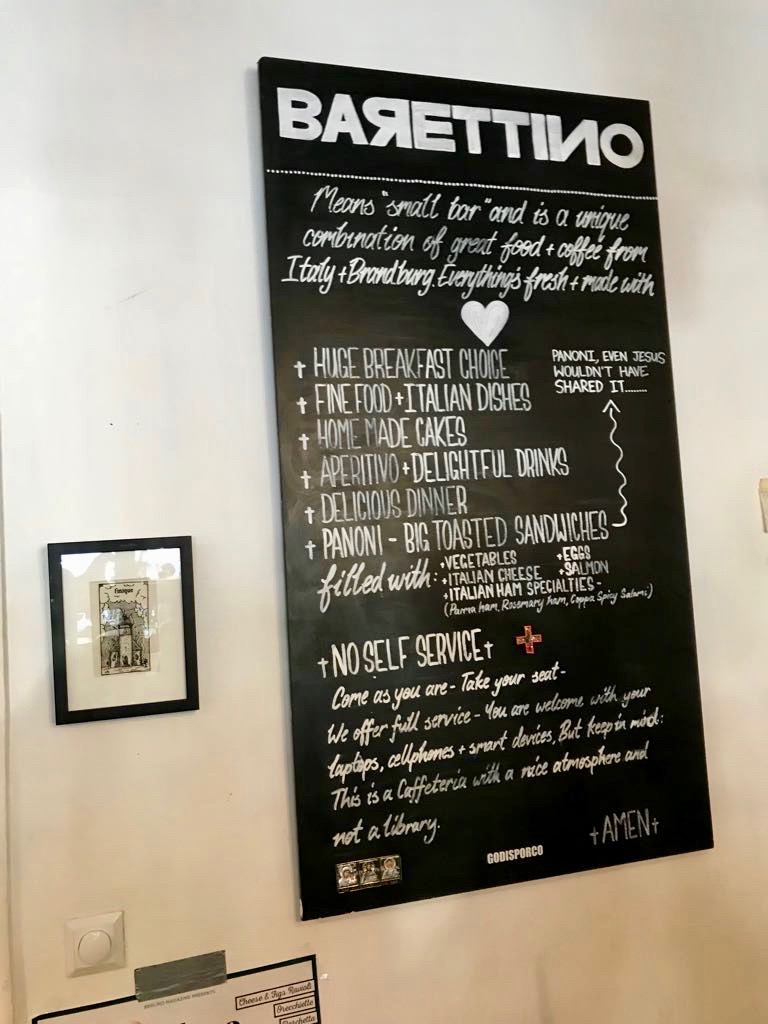 BARETTINO
Means "small bar" and is a unique
combination of great food + coffee from
Italy + Brandburg. Everything's fresh + made with
† HUGE BREAKFAST CHOICE
† FINE FOOD + ITALIAN DISHES
† HOME MADE CAKES
† APERITIVO + DELIGHTFUL DRINKS
† DELICIOUS DINNER
† PANONI - BIG TOASTED SANDWICHES
PANONI, EVEN JESUS
WOULDN'T HAVE
SHARED IT......
filled with:
+VEGETABLES +EGGS
+ITALIAN CHEESE +SALMON
+ITALIAN HAM SPECIALTIES -
(Parma ham, Rosemary ham, Coppa Spicy Salami)
†NO SELF SERVICE†
Come as you are - Take your seat -
We offer full service - You are welcome with your
laptops, cellphones + smart devices, But keep in mind:
This is a Caffeteria with a nice atmosphere and
not a library.
†AMEN†
GODISPORCO
BERLINO MAGAZINE PRESENTS
Cheese & Figs Ravioli
Orecchiette